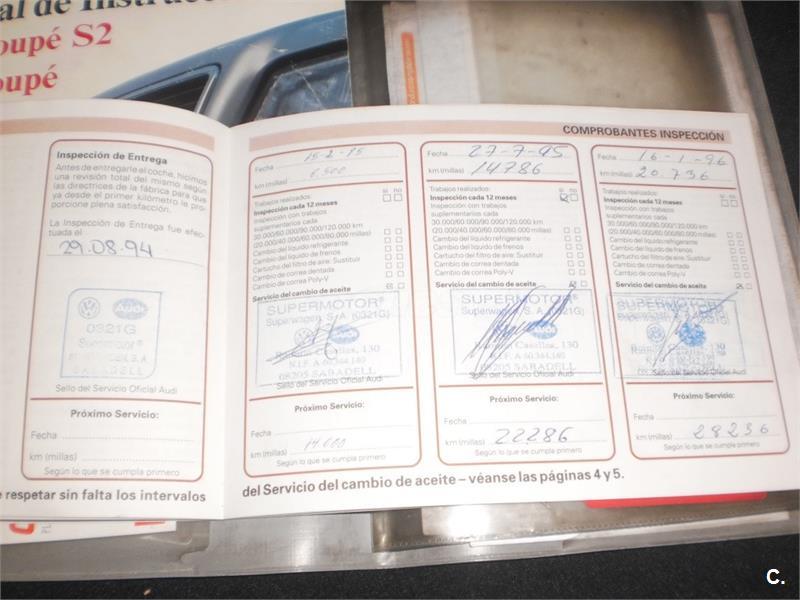 al de Instrucc
oupé S2
oupé
COMPROBANTES INSPECCIÓN
Inspección de Entrega
Antes de entregarle el coche, hicimos
una revisión total del mismo según
las directrices de la fábrica para que
ya desde el primer kilómetro le pro-
porcione plena satisfacción.
La Inspección de Entrega fue efec-
tuada el
29.08.94
Audi
0321G
Supermotor
SABADELL
Sello del Servicio Oficial Audi
Próximo Servicio:
Fecha
km (millas)
Según lo que se cumpla primero
Fecha 15-2-95
km (millas) 6.500
Trabajos realizados: si no
Inspección cada 12 meses
Inspección con trabajos
suplementarios cada
30.000/60.000/90.000/120.000 km
(20.000/40.000/60.000/80.000 millas)
Cambio del líquido refrigerante
Cambio del líquido de frenos
Cartucho del filtro de aire: Sustituir
Cambio de correa dentada
Cambio de correa Poly-V
Servicio del cambio de aceite
SUPERMOTOR®
Superwagen, S.A. (0321G)
Ramón Casellas, 130
N.I.F. A 60.344.140
08205 SABADELL
Sello del Servicio Oficial Audi
Próximo Servicio:
Fecha
km (millas) 14.000
Según lo que se cumpla primero
Fecha 27-7-95
km (millas) 14786
Trabajos realizados: si no
Inspección cada 12 meses
Inspección con trabajos
suplementarios cada
30.000/60.000/90.000/120.000 km
(20.000/40.000/60.000/80.000 millas)
Cambio del líquido refrigerante
Cambio del líquido de frenos
Cartucho del filtro de aire: Sustituir
Cambio de correa dentada
Cambio de correa Poly-V
Servicio del cambio de aceite
SUPERMOTOR®
Superwagen, S.A. (0321G)
Ramón Casellas, 130
N.I.F. A 60.344.140
08205 SABADELL
Sello del Servicio Oficial Audi
Próximo Servicio:
Fecha
km (millas) 22286
Según lo que se cumpla primero
Fecha 16-1-96
km (millas) 20.736
Trabajos realizados: si no
Inspección cada 12 meses
Inspección con trabajos
suplementarios cada
30.000/60.000/90.000/120.000 km
(20.000/40.000/60.000/80.000 millas)
Cambio del líquido refrigerante
Cambio del líquido de frenos
Cartucho del filtro de aire: Sustituir
Cambio de correa dentada
Cambio de correa Poly-V
Servicio del cambio de aceite
SUPERMOTOR®
Superwagen, S.A. (0321G)
08205 SABADELL
Sello del Servicio Oficial Audi
Próximo Servicio:
Fecha
km (millas) 28236
Según lo que se cumpla primero
e respetar sin falta los intervalos
del Servicio del cambio de aceite – véanse las páginas 4 y 5.
C.